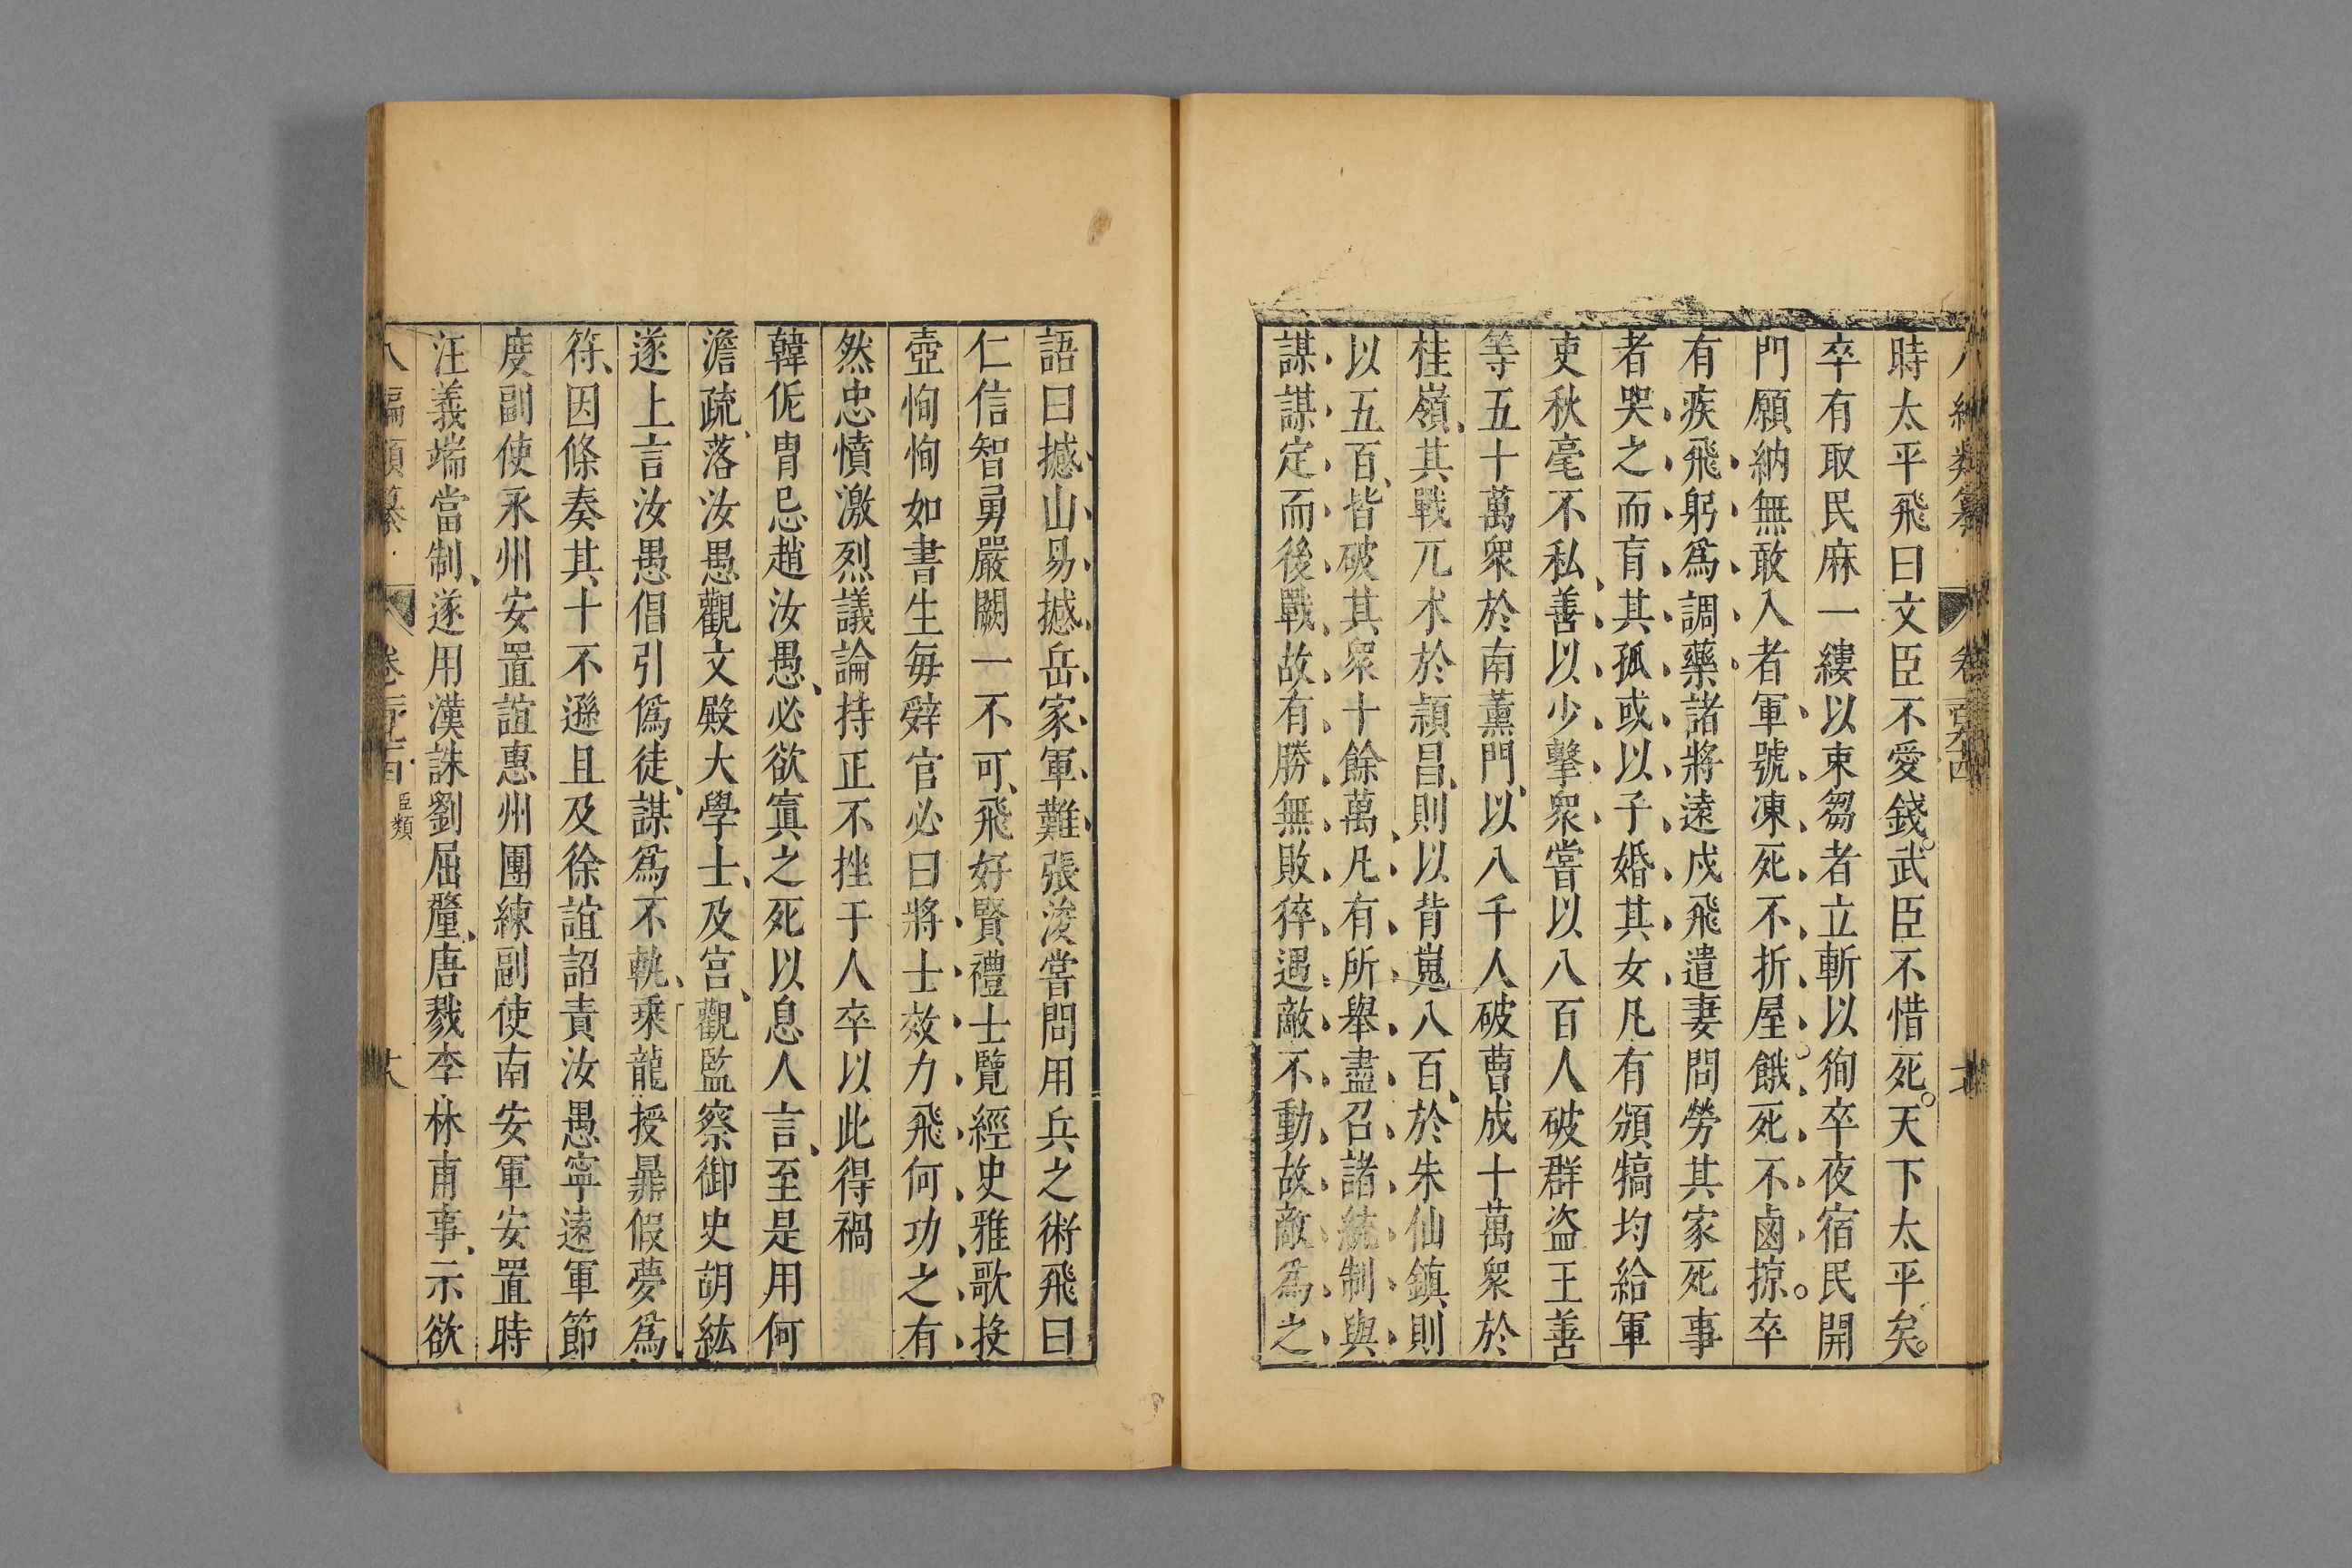 時太平飛曰文臣不愛錢武臣不惜死天下太平矣
卒有取民麻一縷以束芻者立斬以狥卒夜宿民開
門願納無敢入者軍號凍死不折屋餓死不鹵掠卒
有疾飛躬爲調藥諸將遠戍飛遣妻問勞其家死事
者哭之而育其孤或以子婚其女凡有頒犒均給軍
吏秋毫不私善以少擊衆嘗以八百人破群盜王善
等五十萬衆於南薰門以八千人破曹成十萬衆於
桂嶺其戰兀朮於頴昌則以背嵬八百於朱仙鎮則
以五百皆破其衆十餘萬凡有所舉盡召諸統制與
謀謀定而後戰故有勝無敗猝遇敵不動故敵爲之
語曰撼山易撼岳家軍難張浚嘗問用兵之術飛曰
仁信智勇嚴闕一不可飛好賢禮士覽經史雅歌投
壺恂恂如書生每辤官必曰將士效力飛何功之有
然忠憤激烈議論持正不挫于人卒以此得禍
韓侂胄忌趙汝愚必欲寘之死以息人言至是用何
澹疏落汝愚觀文殿大學士及宫觀監察御史胡紘
遂上言汝愚倡引僞徒謀爲不軌乘龍授鼎假夢爲
符因條奏其十不遜且及徐誼詔責汝愚寧遠軍節
度副使永州安置誼惠州團練副使南安軍安置時
汪義端當制遂用漢誅劉屈氂唐戮李林甫事示欲
編類纂 卷 臣類 十八